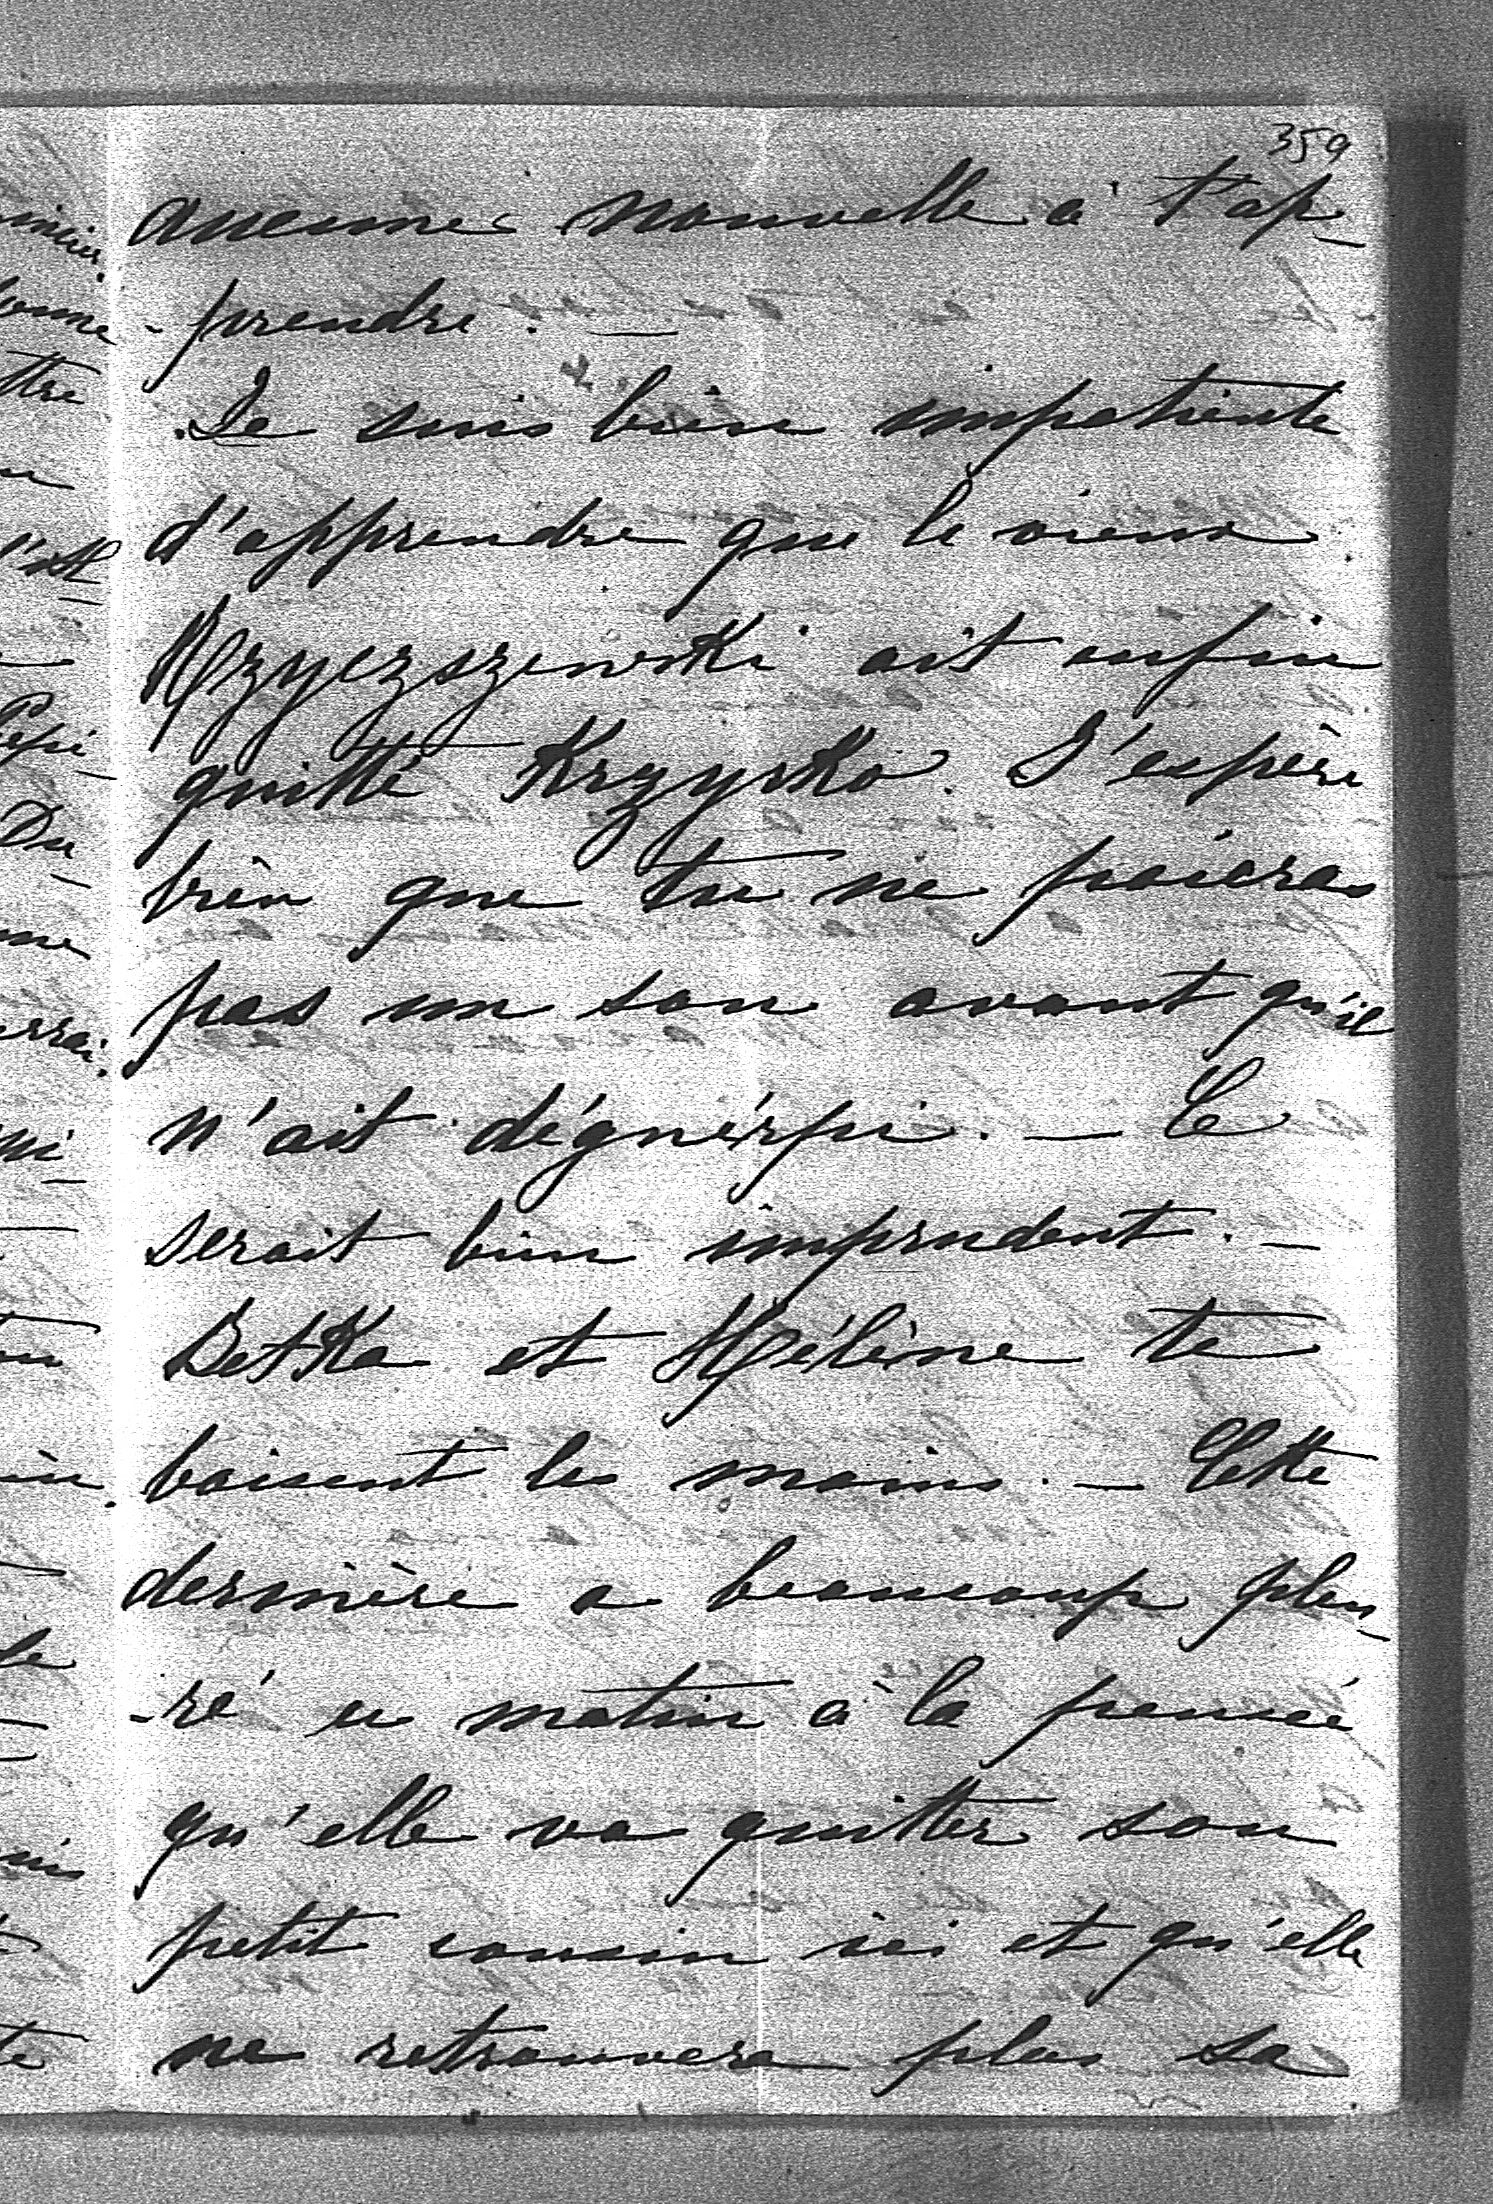 359
aucune nouvelle à t'ap-
-prendre. —
Je suis bien impatiente
d'apprendre que le vieux
Rzyczszewski ait enfin
quitté Krzyrko. J'espère
bien que tu ne paieras
pas un sou avant qu'il
n'ait déguérpi. — Ce
serait bien imprudent. —
Betka et Hélène te
baisent les mains. — Cette
dernière a beaucoup pleu-
-ré ce matin à la pensée
qu'elle va quitter son
petit cousin ici et qu'elle
ne retrouvera plus sa